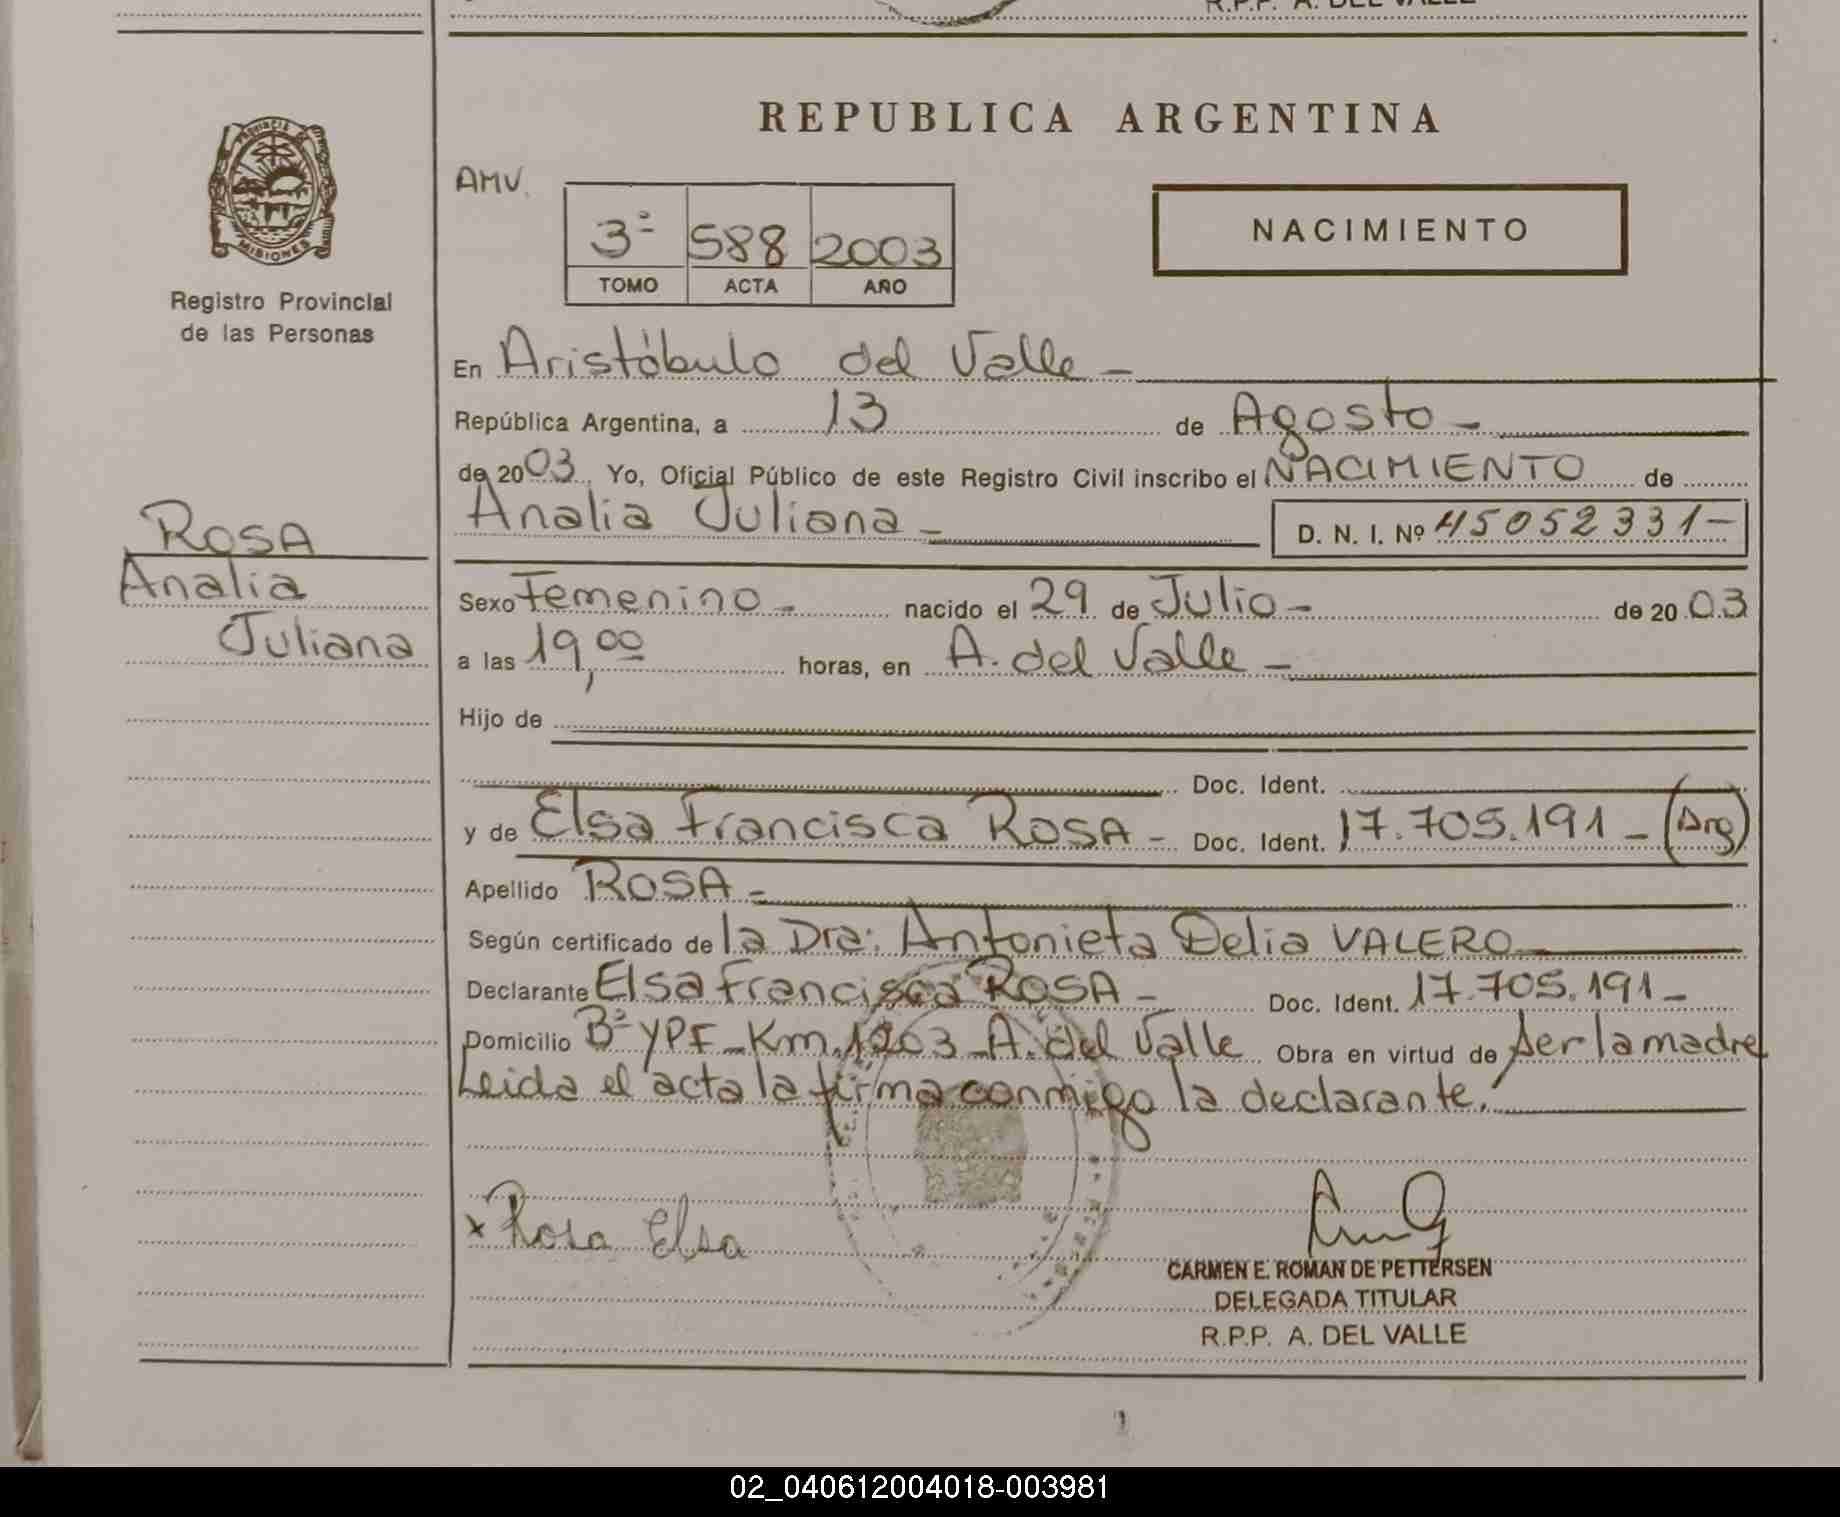 R.P.P. A. DEL VALLE
PROVINCIA DE
MISIONES
Registro Provincial
de las Personas
ROSA
Analia
Juliana
REPUBLICA ARGENTINA
AMV.
3º 588 2003
TOMO ACTA AÑO
NACIMIENTO
En Aristóbulo del Valle –
República Argentina, a 13 de Agosto –
de 2003. Yo, Oficial Público de este Registro Civil inscribo el NACIMIENTO de
Analia Juliana – D. N. I. Nº 45052331–
Sexo Femenino – nacido el 29 de Julio – de 20 03
a las 19,00 horas, en A. del Valle –
Hijo de
Doc. Ident.
y de Elsa Francisca ROSA – Doc. Ident. 17.705.191 – (Arg)
Apellido ROSA –
Según certificado de la Dra: Antonieta Delia VALERO
Declarante Elsa Francisca ROSA – Doc. Ident. 17.705.191 –
Domicilio Bº YPF – Km. 1203 – A. del Valle Obra en virtud de ser la madre
Leida el acta la firma conmigo la declarante.
x Rosa Elsa
CARMEN E. ROMAN DE PETTERSEN
DELEGADA TITULAR
R.P.P. A. DEL VALLE
02_040612004018-003981